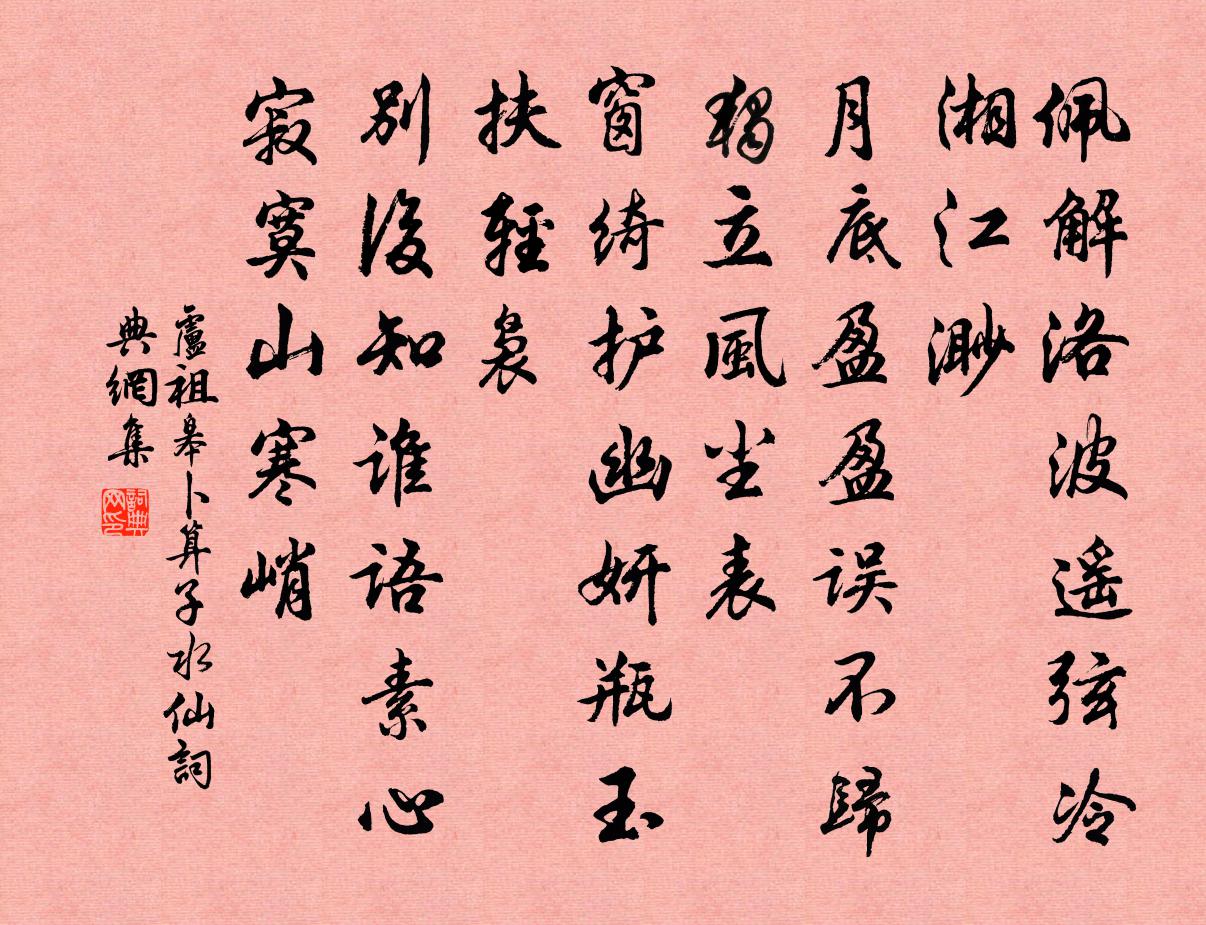 佩解洛波遥弦冷
湘江渺
月底盈盈误不歸
獨立風尘表
窗绮护幽妍瓶玉
扶輕袅
別後知谁语素心
寂寞山寒峭
盧祖皋卜算子水仙詞
典網集
詞典
网印